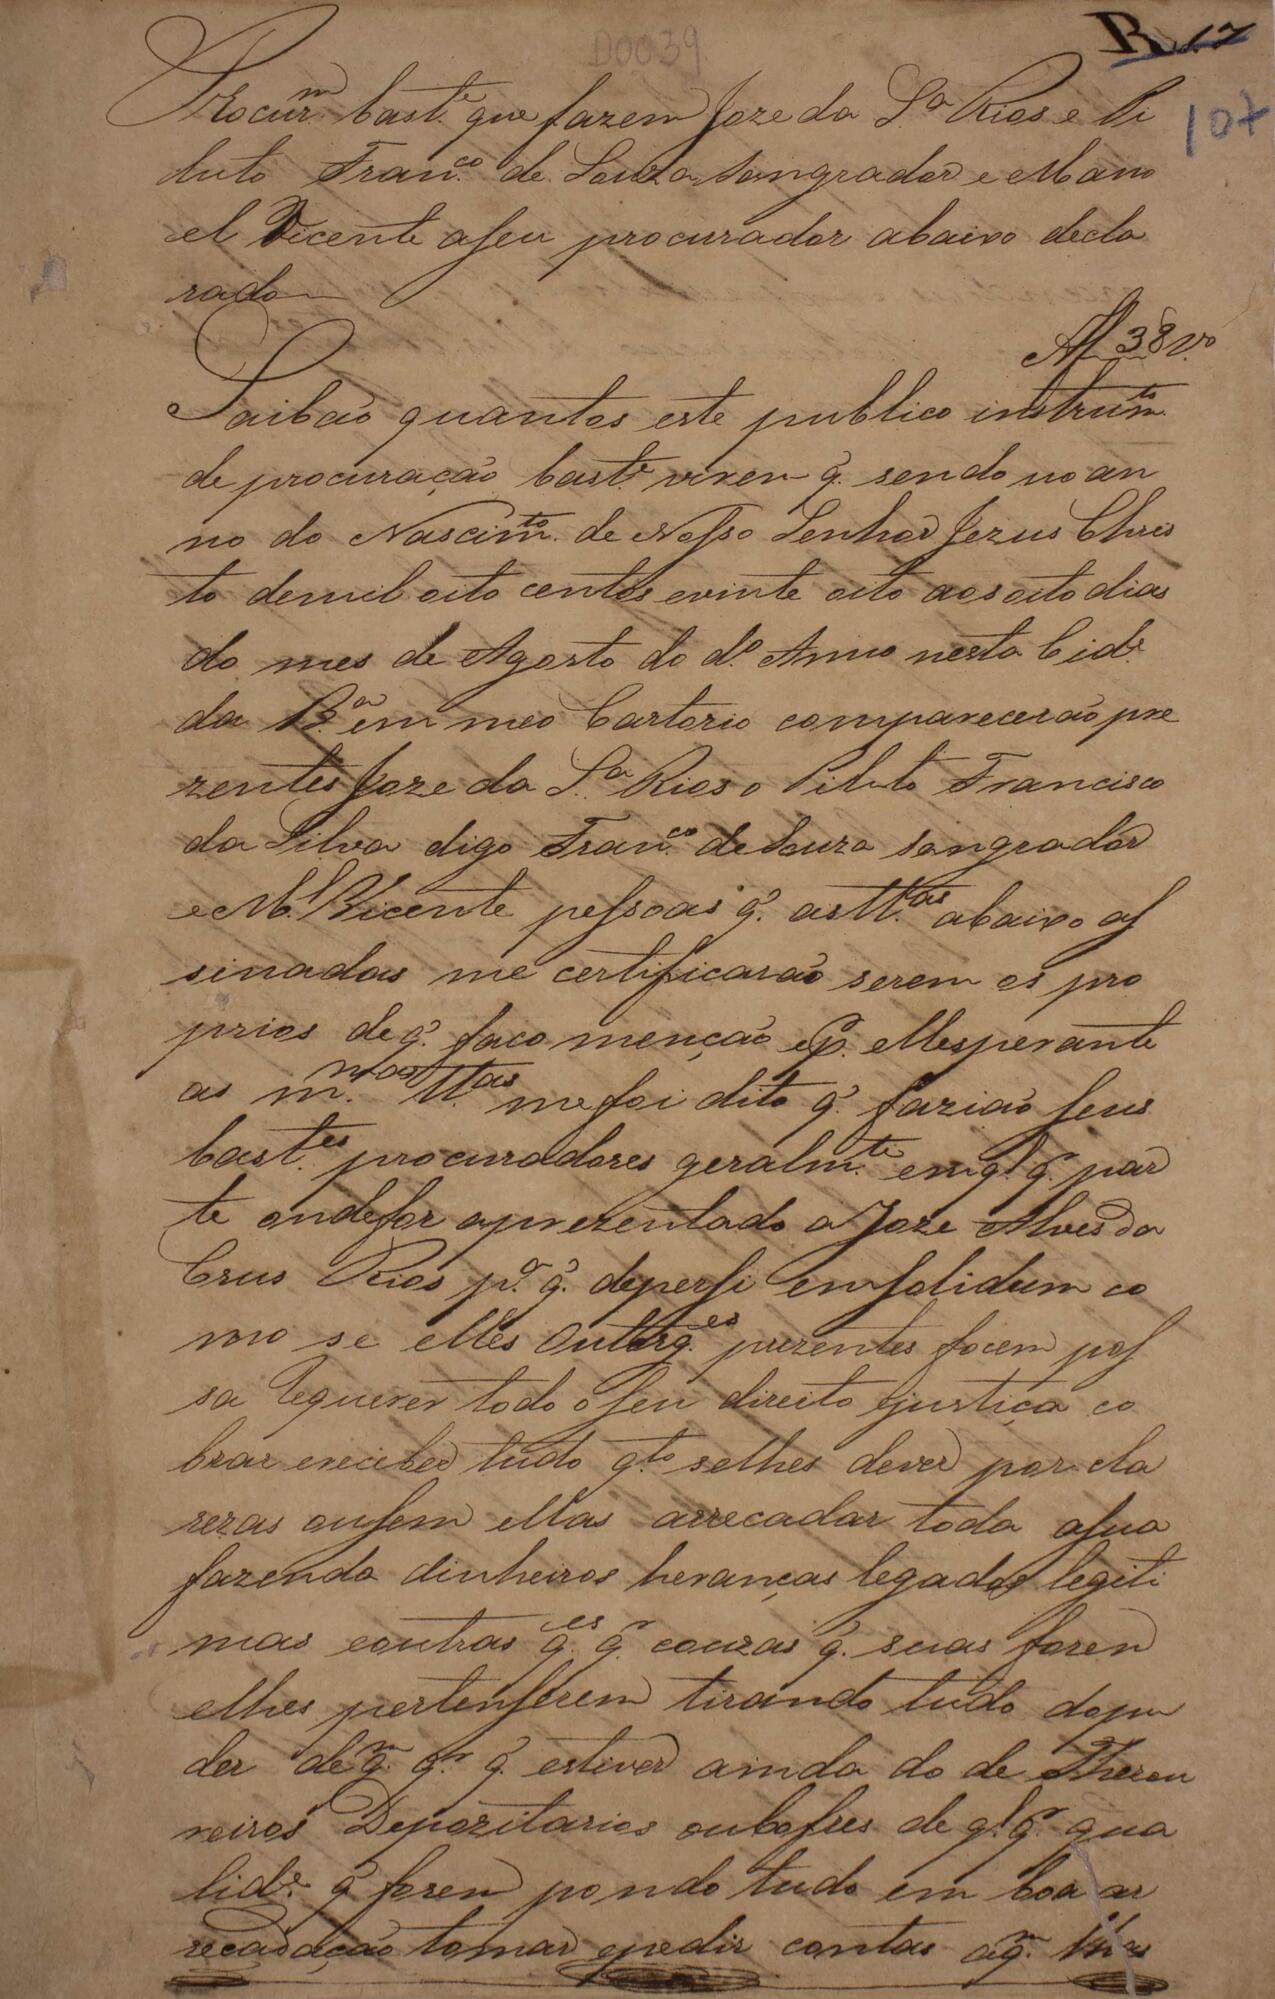 D0039
R. 17
107
Procur.m bast.e que fazem Joze da S.a Rios e Pi
luto Fran.co de Souza Sangrador e Mano
el Vicente a seu procurador abaixo decla
rado
Af 38 v.o
Saibão quantos este publico instrum.to
de procuração bast.e virem q. sendo no an
no do Nascim.to de Nosso Senhor Jezus Chris
to de mil oito centos e vinte oito aos oito dias
do mes de Agosto do d.o Anno nesta Cid.e
da B.a em meo Cartorio comparecerão pre
zentes Joze da S.a Rios o Piluto Francisco
da Silva digo Fran.co de Souza Sangrador
e M.el Vicente pessoas q. as tt.as abaixo as
sinadas me certificarão serem os pro
prios de q. faco menção e p. elles perante
as m.mas tt.as me foi dito q. fazião seus
bast.es procuradores geralm.te em q.l q.r par
te onde for aprezentado a Joze Alves da
Crus Rios p.a q. de per si em solidum co
mo se elles Outorg.es prezentes focem pos
sa requerer todo o seu direito e justiça co
brar e reciber tudo q.to se lhes dever por cla
rezas ou sem ellas arrecadar toda a sua
fazenda dinheiros heranças legados legiti
mas e outras q.es q.r couzas q. suas forem
e lhes pertenserem tirando tudo do pu
der de q.m q.r q. estiver ainda do de Thezou
reiros Depozitarios ou cofres de q.l q.r qua
lid.e q. forem pondo tudo em boa ar
recadação tomar e pedir contas a q.m lhas